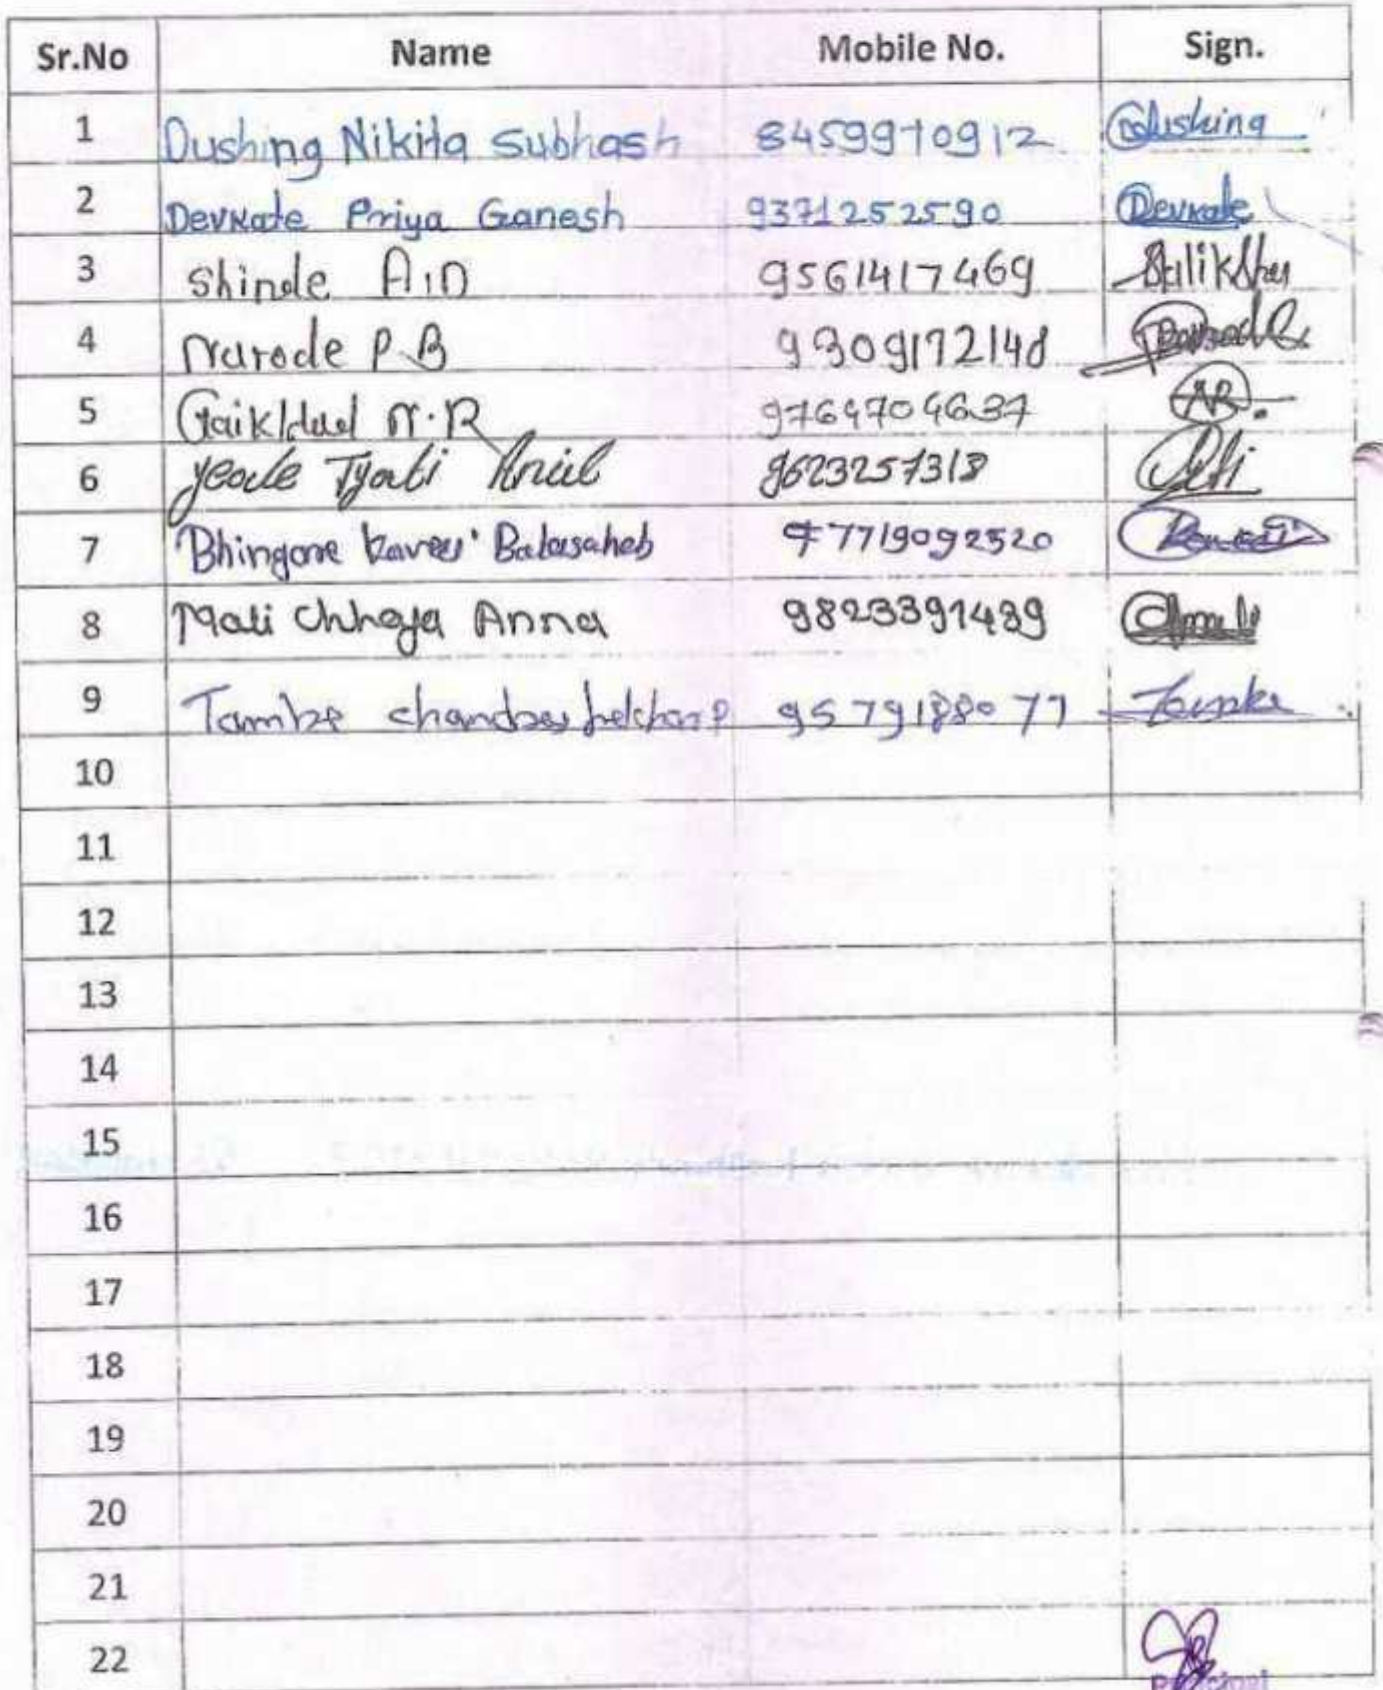 Sr.No Name Mobile No. Sign.
1 Dushing Nikita Subhash 8459970912 Dushing
2 Devkate Priya Ganesh 9371252590 Devkate
3 Shinde A.D 9561417469
4 Narode P.B 9309172148
5 Gaikwad N.R 9764704637 NR.
6 Jyoti Anil 9623257318
7 Bhingare Kaveri Balasaheb 7719092520
8 Mali Chhaya Anna 9823391489
9 Tambe chandrashekhar P 9579188077
10
11
12
13
14
15
16
17
18
19
20
21
22
Principal